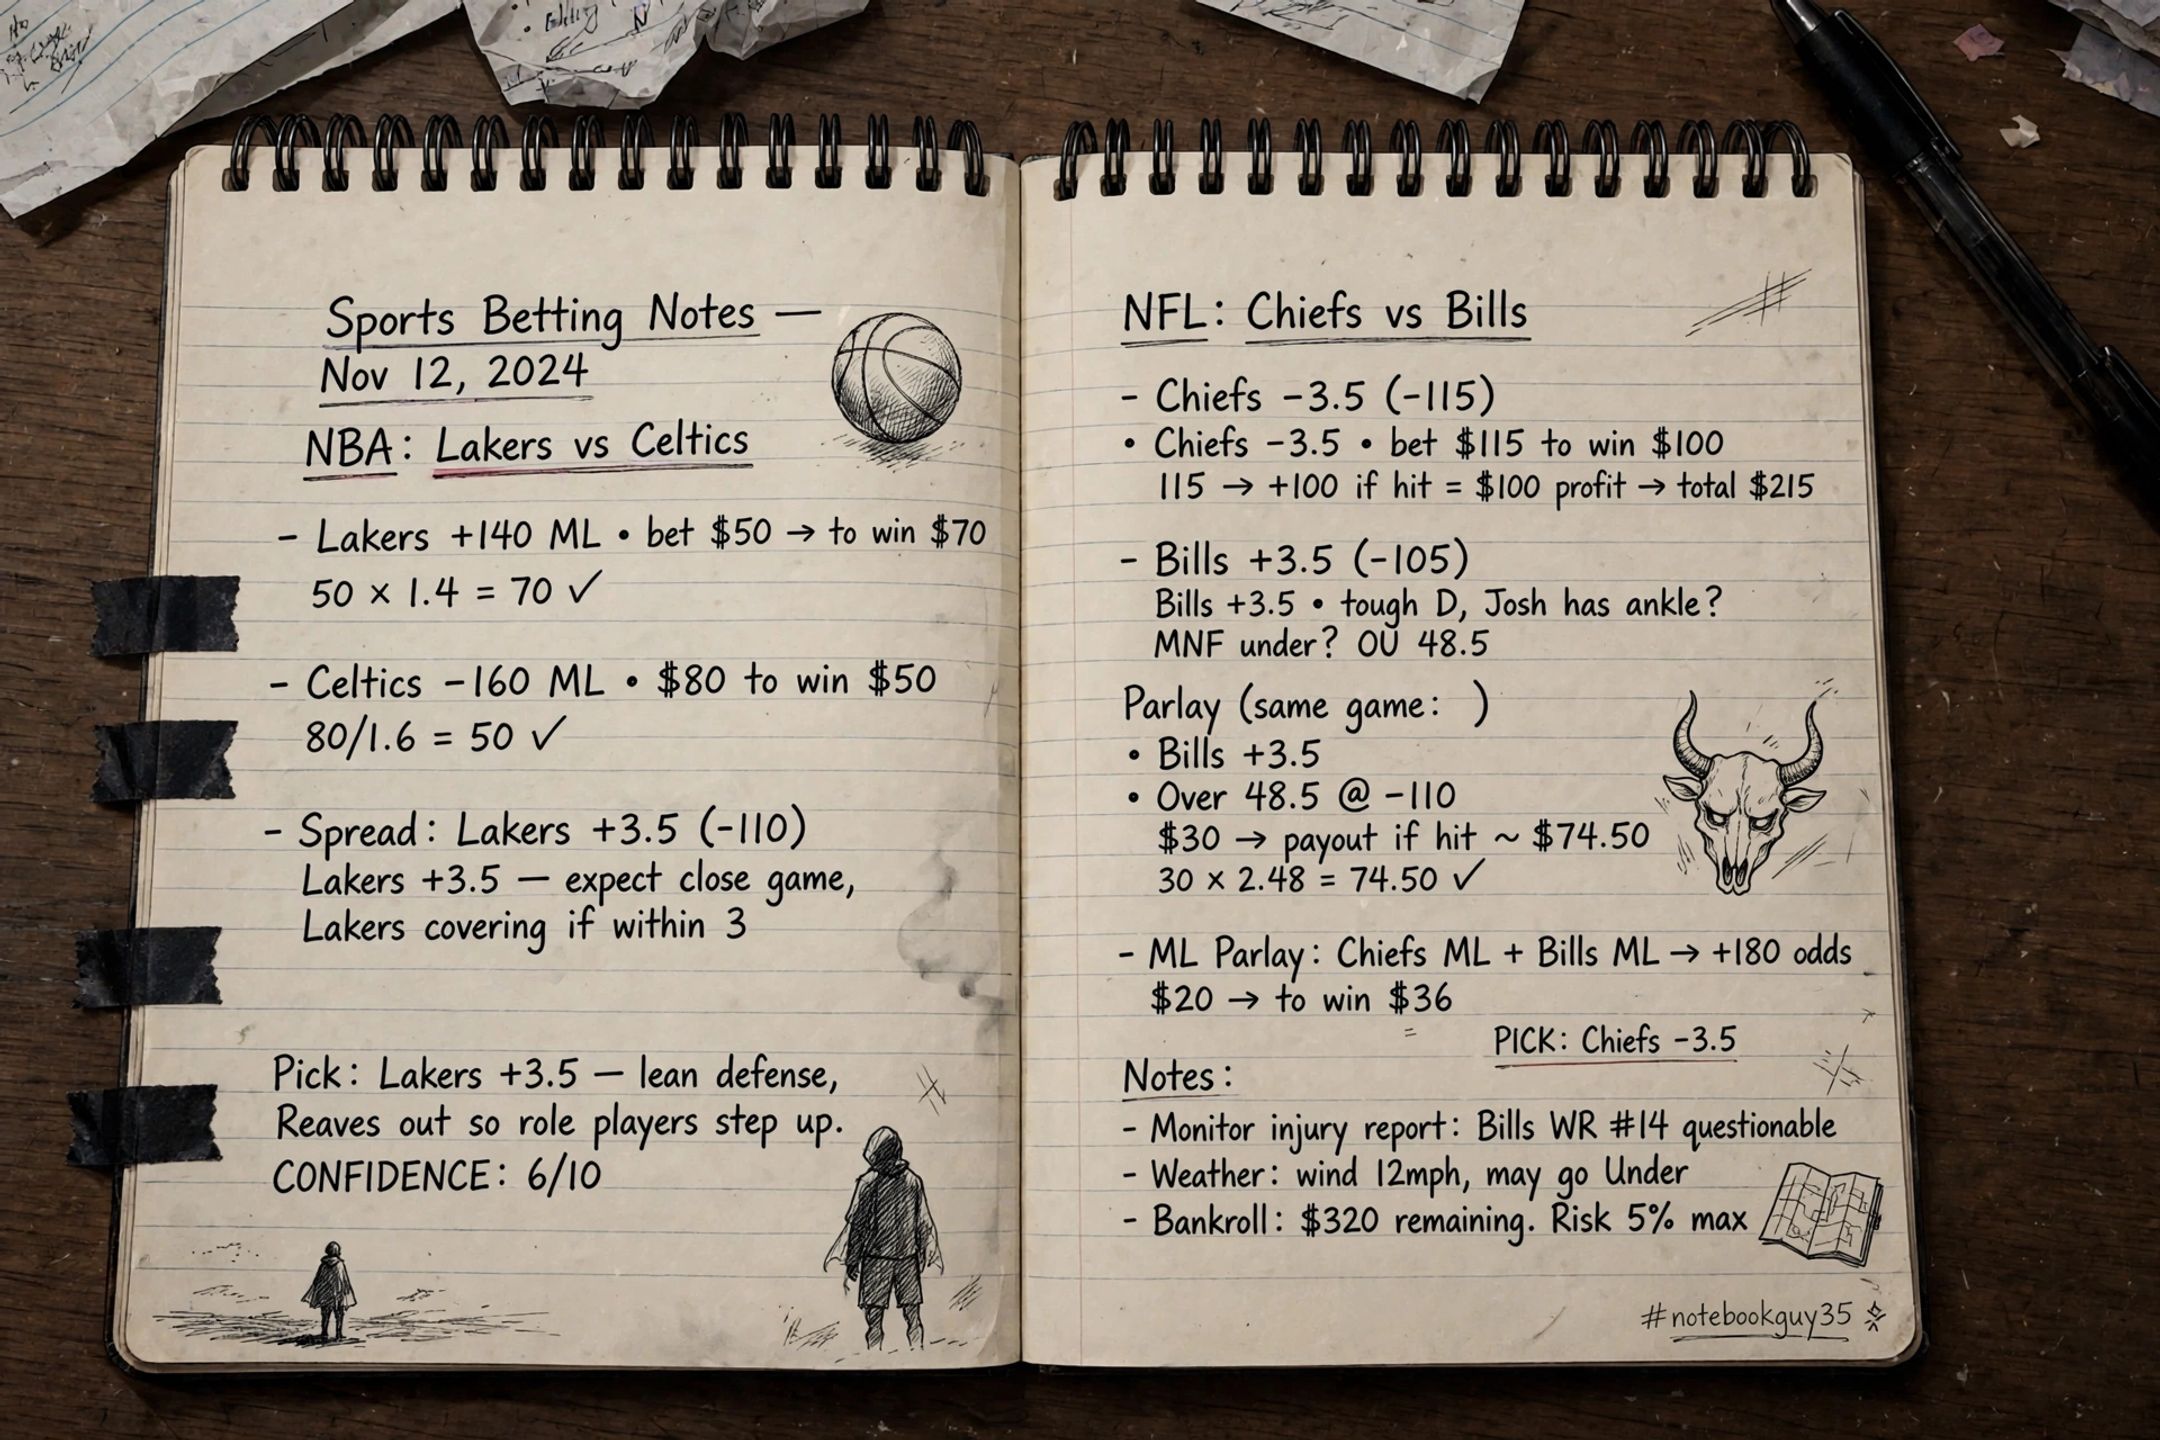 Sports Betting Notes —
Nov 12, 2024
NBA: Lakers vs Celtics
- Lakers +140 ML • bet $50 → to win $70
50 × 1.4 = 70 ✓
- Celtics -160 ML • $80 to win $50
80/1.6 = 50 ✓
- Spread: Lakers +3.5 (-110)
Lakers +3.5 — expect close game,
Lakers covering if within 3
Pick: Lakers +3.5 — lean defense,
Reaves out so role players step up.
CONFIDENCE: 6/10
NFL: Chiefs vs Bills
- Chiefs -3.5 (-115)
• Chiefs -3.5 • bet $115 to win $100
115 → +100 if hit = $100 profit → total $215
- Bills +3.5 (-105)
Bills +3.5 • tough D, Josh has ankle?
MNF under? OU 48.5
Parlay (same game: )
• Bills +3.5
• Over 48.5 @ -110
$30 → payout if hit ~ $74.50
30 × 2.48 = 74.50 ✓
- ML Parlay: Chiefs ML + Bills ML → +180 odds
$20 → to win $36
=
PICK: Chiefs -3.5
Notes:
- Monitor injury report: Bills WR #14 questionable
- Weather: wind 12mph, may go Under
- Bankroll: $320 remaining. Risk 5% max
#notebookguy35